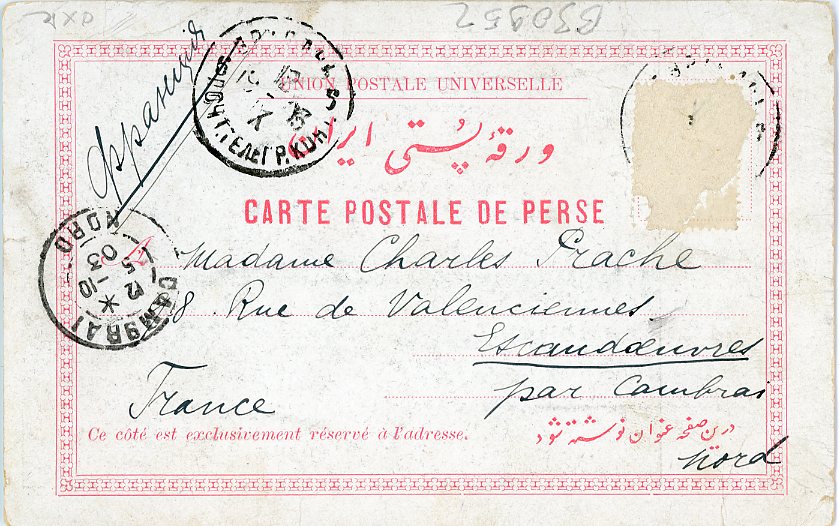 Франція
UNION POSTALE UNIVERSELLE
ورقهٔ پُستی ایران
CARTE POSTALE DE PERSE
Madame Charles Prache
8. Rue de Valenciennes
Escaudœuvres
par Cambrai
France
Ce côté est exclusivement réservé à l'adresse.
درین صفحه عنوان نوشته شود
Nord
CAMBRAI
NORD
5 03